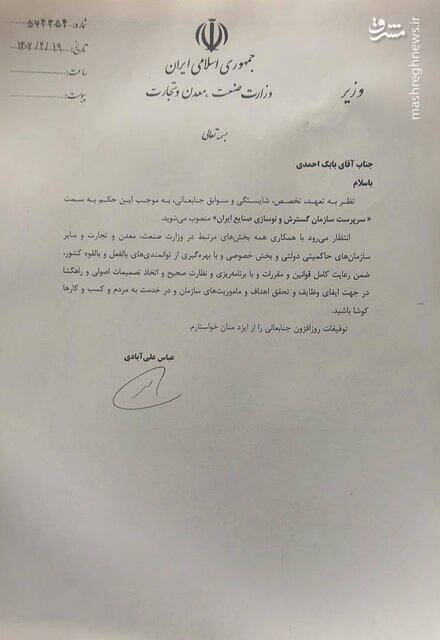 شماره: ۵۷۴۳۵۴
تاریخ: ۱۴۰۲/۴/۱۹
ساعت:
پیوست:
جمهوری اسلامی ایران
وزارت صنعت، معدن و تجارت
وزیر
بسمه تعالی
جناب آقای بابک احمدی
باسلام
نظر به تعهد، تخصص، شایستگی و سوابق جنابعالی، به موجب این حکم به سمت
«سرپرست سازمان گسترش و نوسازی صنایع ایران» منصوب می‌شوید.
انتظار می‌رود با همکاری همه بخش‌های مرتبط در وزارت صنعت، معدن و تجارت و سایر
سازمان‌های حاکمیتی دولتی و بخش خصوصی و با بهره‌گیری از توانمندی‌های بالفعل و بالقوه کشور،
ضمن رعایت کامل قوانین و مقررات و با برنامه‌ریزی و نظارت صحیح و اتخاذ تصمیمات اصولی و راهگشا
در جهت ایفای وظایف و تحقق اهداف و ماموریت‌های سازمان و در خدمت به مردم و کسب و کارها
کوشا باشید.
توفیقات روزافزون جنابعالی را از ایزد منان خواستارم.
عباس علی‌آبادی
مشرق
mashreghnews.ir